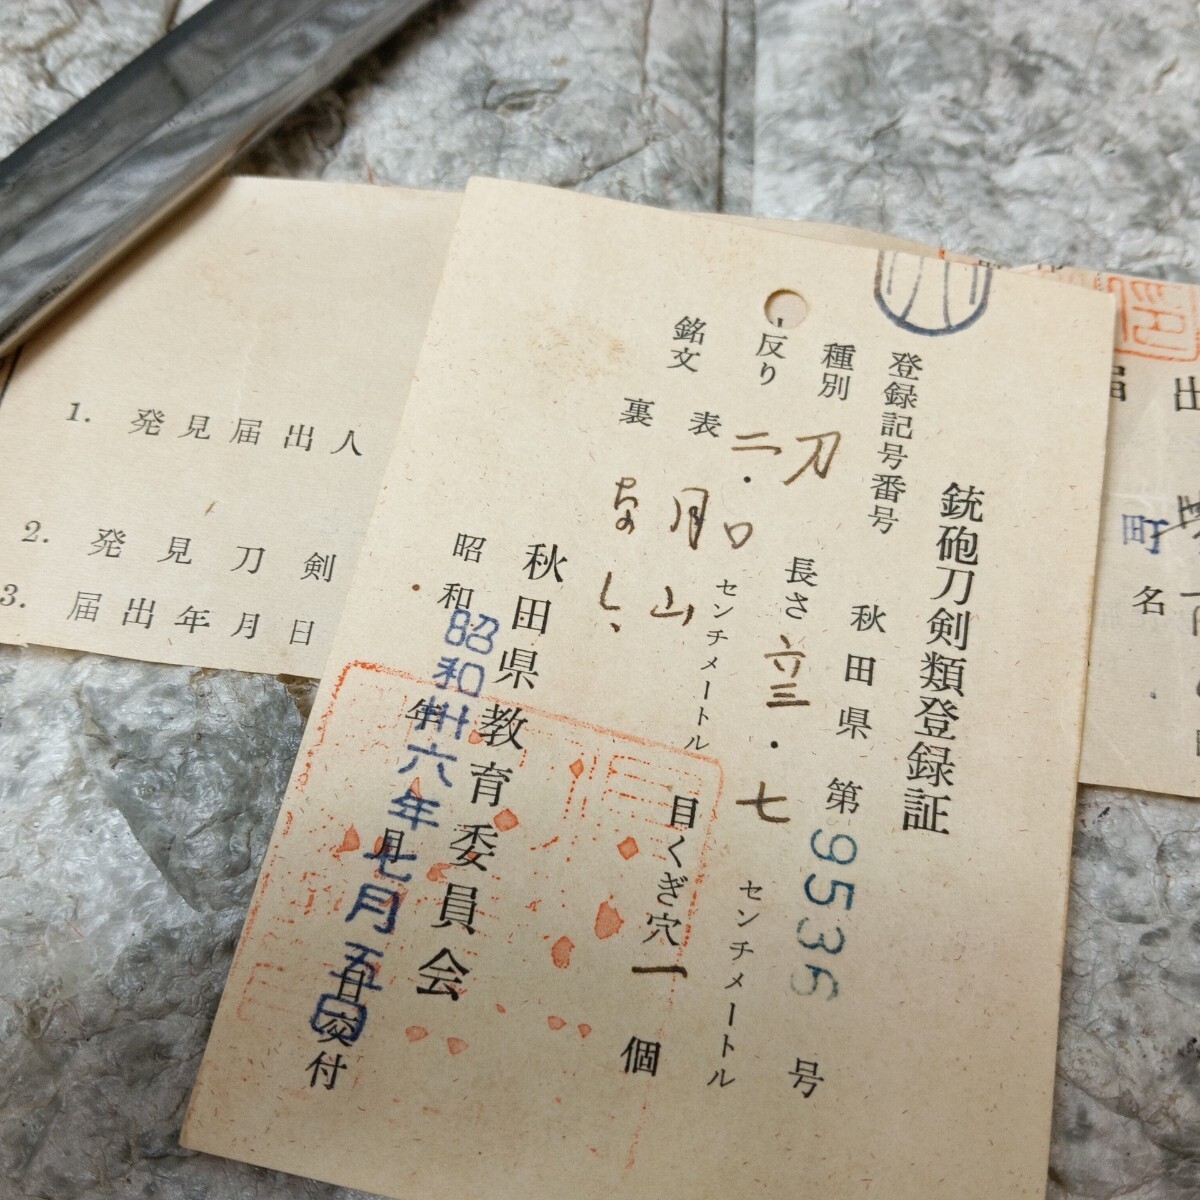 銃砲刀剣類登録証
登録記号番号 秋田県 第9536号
種別 刀 長さ 六三・七 センチメートル
反り 二・口 センチメートル 目くぎ穴 一 個
銘文 表 月山
裏 なし
秋田県教育委員会
昭和 年 月 日交付
昭和卅六年七月五日
1. 発見届出人
2. 発見刀剣
3. 届出年月日
届出
町名